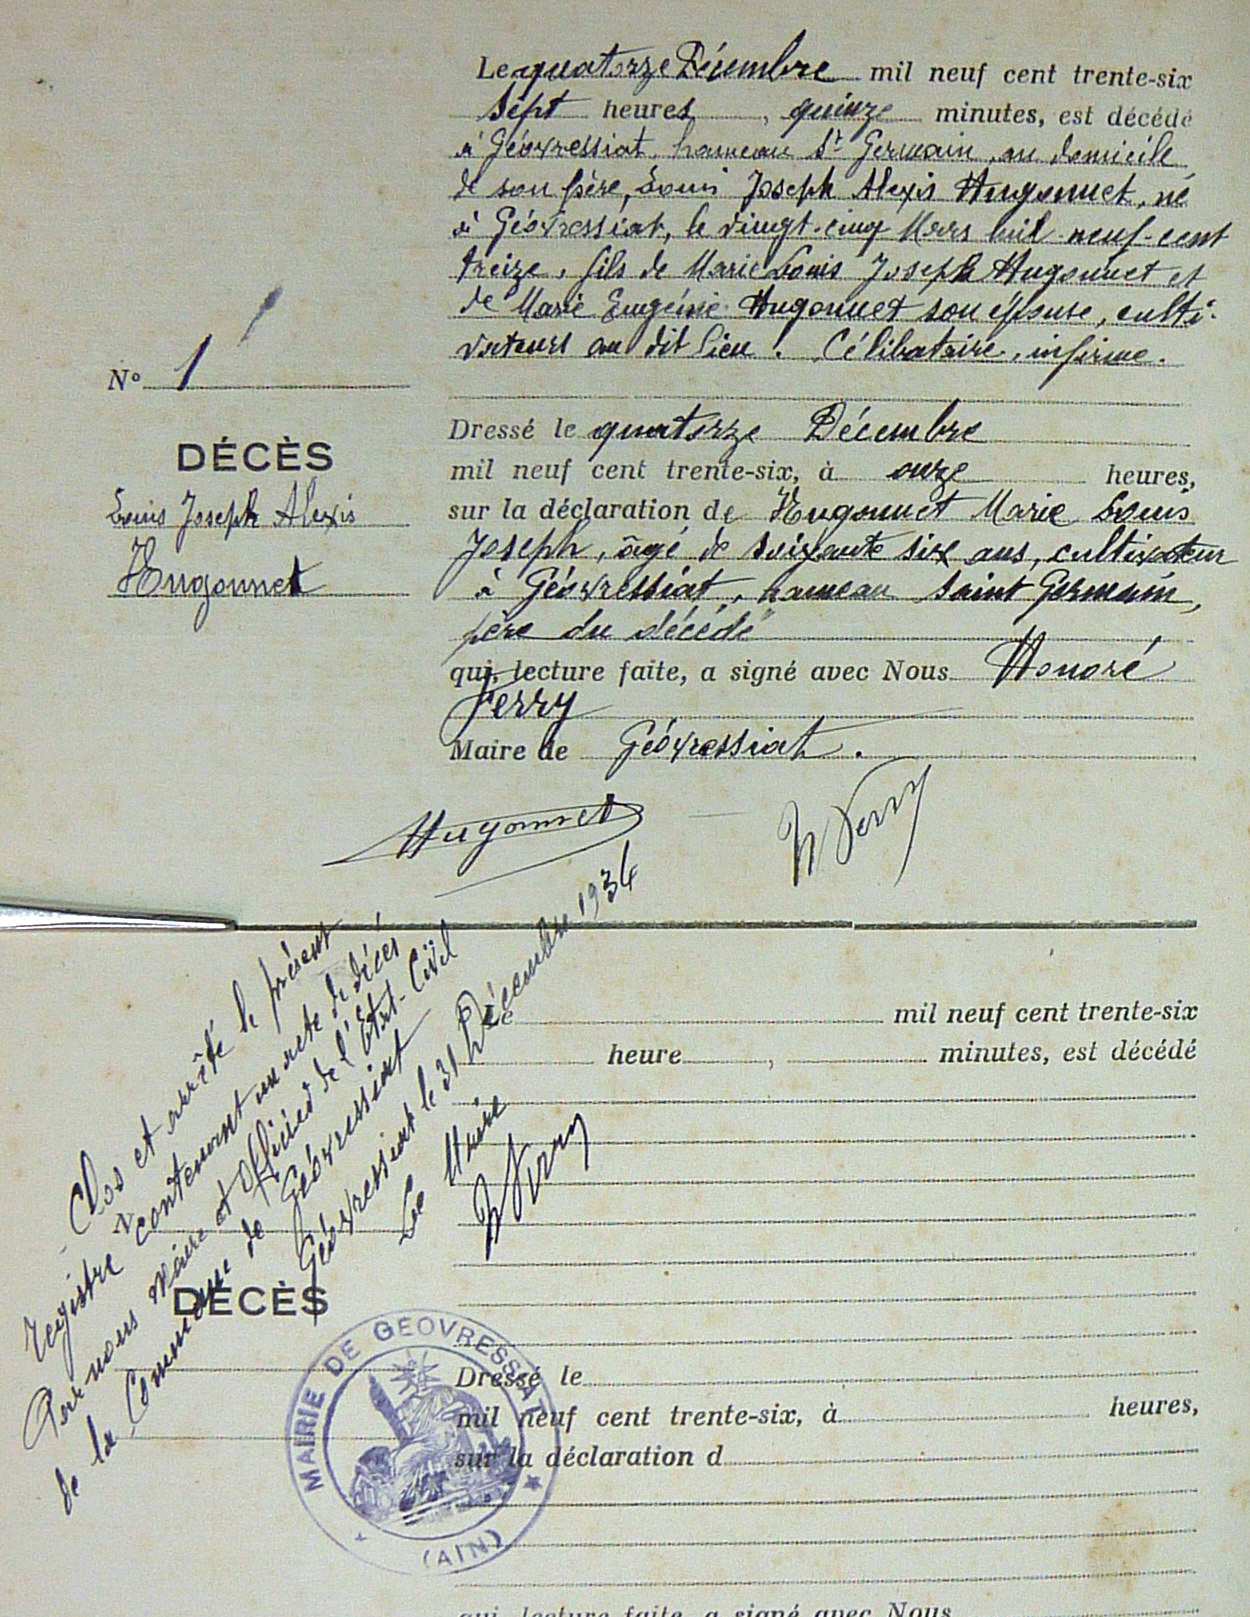 Le quatorze Décembre mil neuf cent trente-six
sept heures, quinze minutes, est décédé
à Géovressiat, hameau St Germain, au domicile
de son père, Louis Joseph Alexis Hugonnet, né
à Géovressiat, le vingt-cinq Mars mil-neuf-cent
treize, fils de Marie Louis Joseph Hugonnet et
de Marie Eugénie Hugonnet son épouse, culti-
vateurs au dit lieu. Célibataire, infirme.
No 1
DÉCÈS
Louis Joseph Alexis
Hugonnet
Dressé le quatorze Décembre
mil neuf cent trente-six, à onze heures,
sur la déclaration de Hugonnet Marie Louis
Joseph, âgé de soixante six ans, cultivateur
à Géovressiat, hameau Saint Germain,
père du décédé
qui, lecture faite, a signé avec Nous Honoré
Ferry
Maire de Géovressiat.
Hugonnet
H Ferry
Clos et arrêté le présent
registre contenant un acte de décès
Par nous Maire et Officier de l'Etat-Civil
de la Commune de Géovressiat
Géovressiat le 31 Décembre 1936
Le Maire
H Ferry
Le mil neuf cent trente-six
heure, minutes, est décédé
N
DÉCÈS
MAIRIE DE GEOVRESSIAT
(AIN)
Dressé le
mil neuf cent trente-six, à heures,
sur la déclaration d
qui, lecture faite, a signé avec Nous